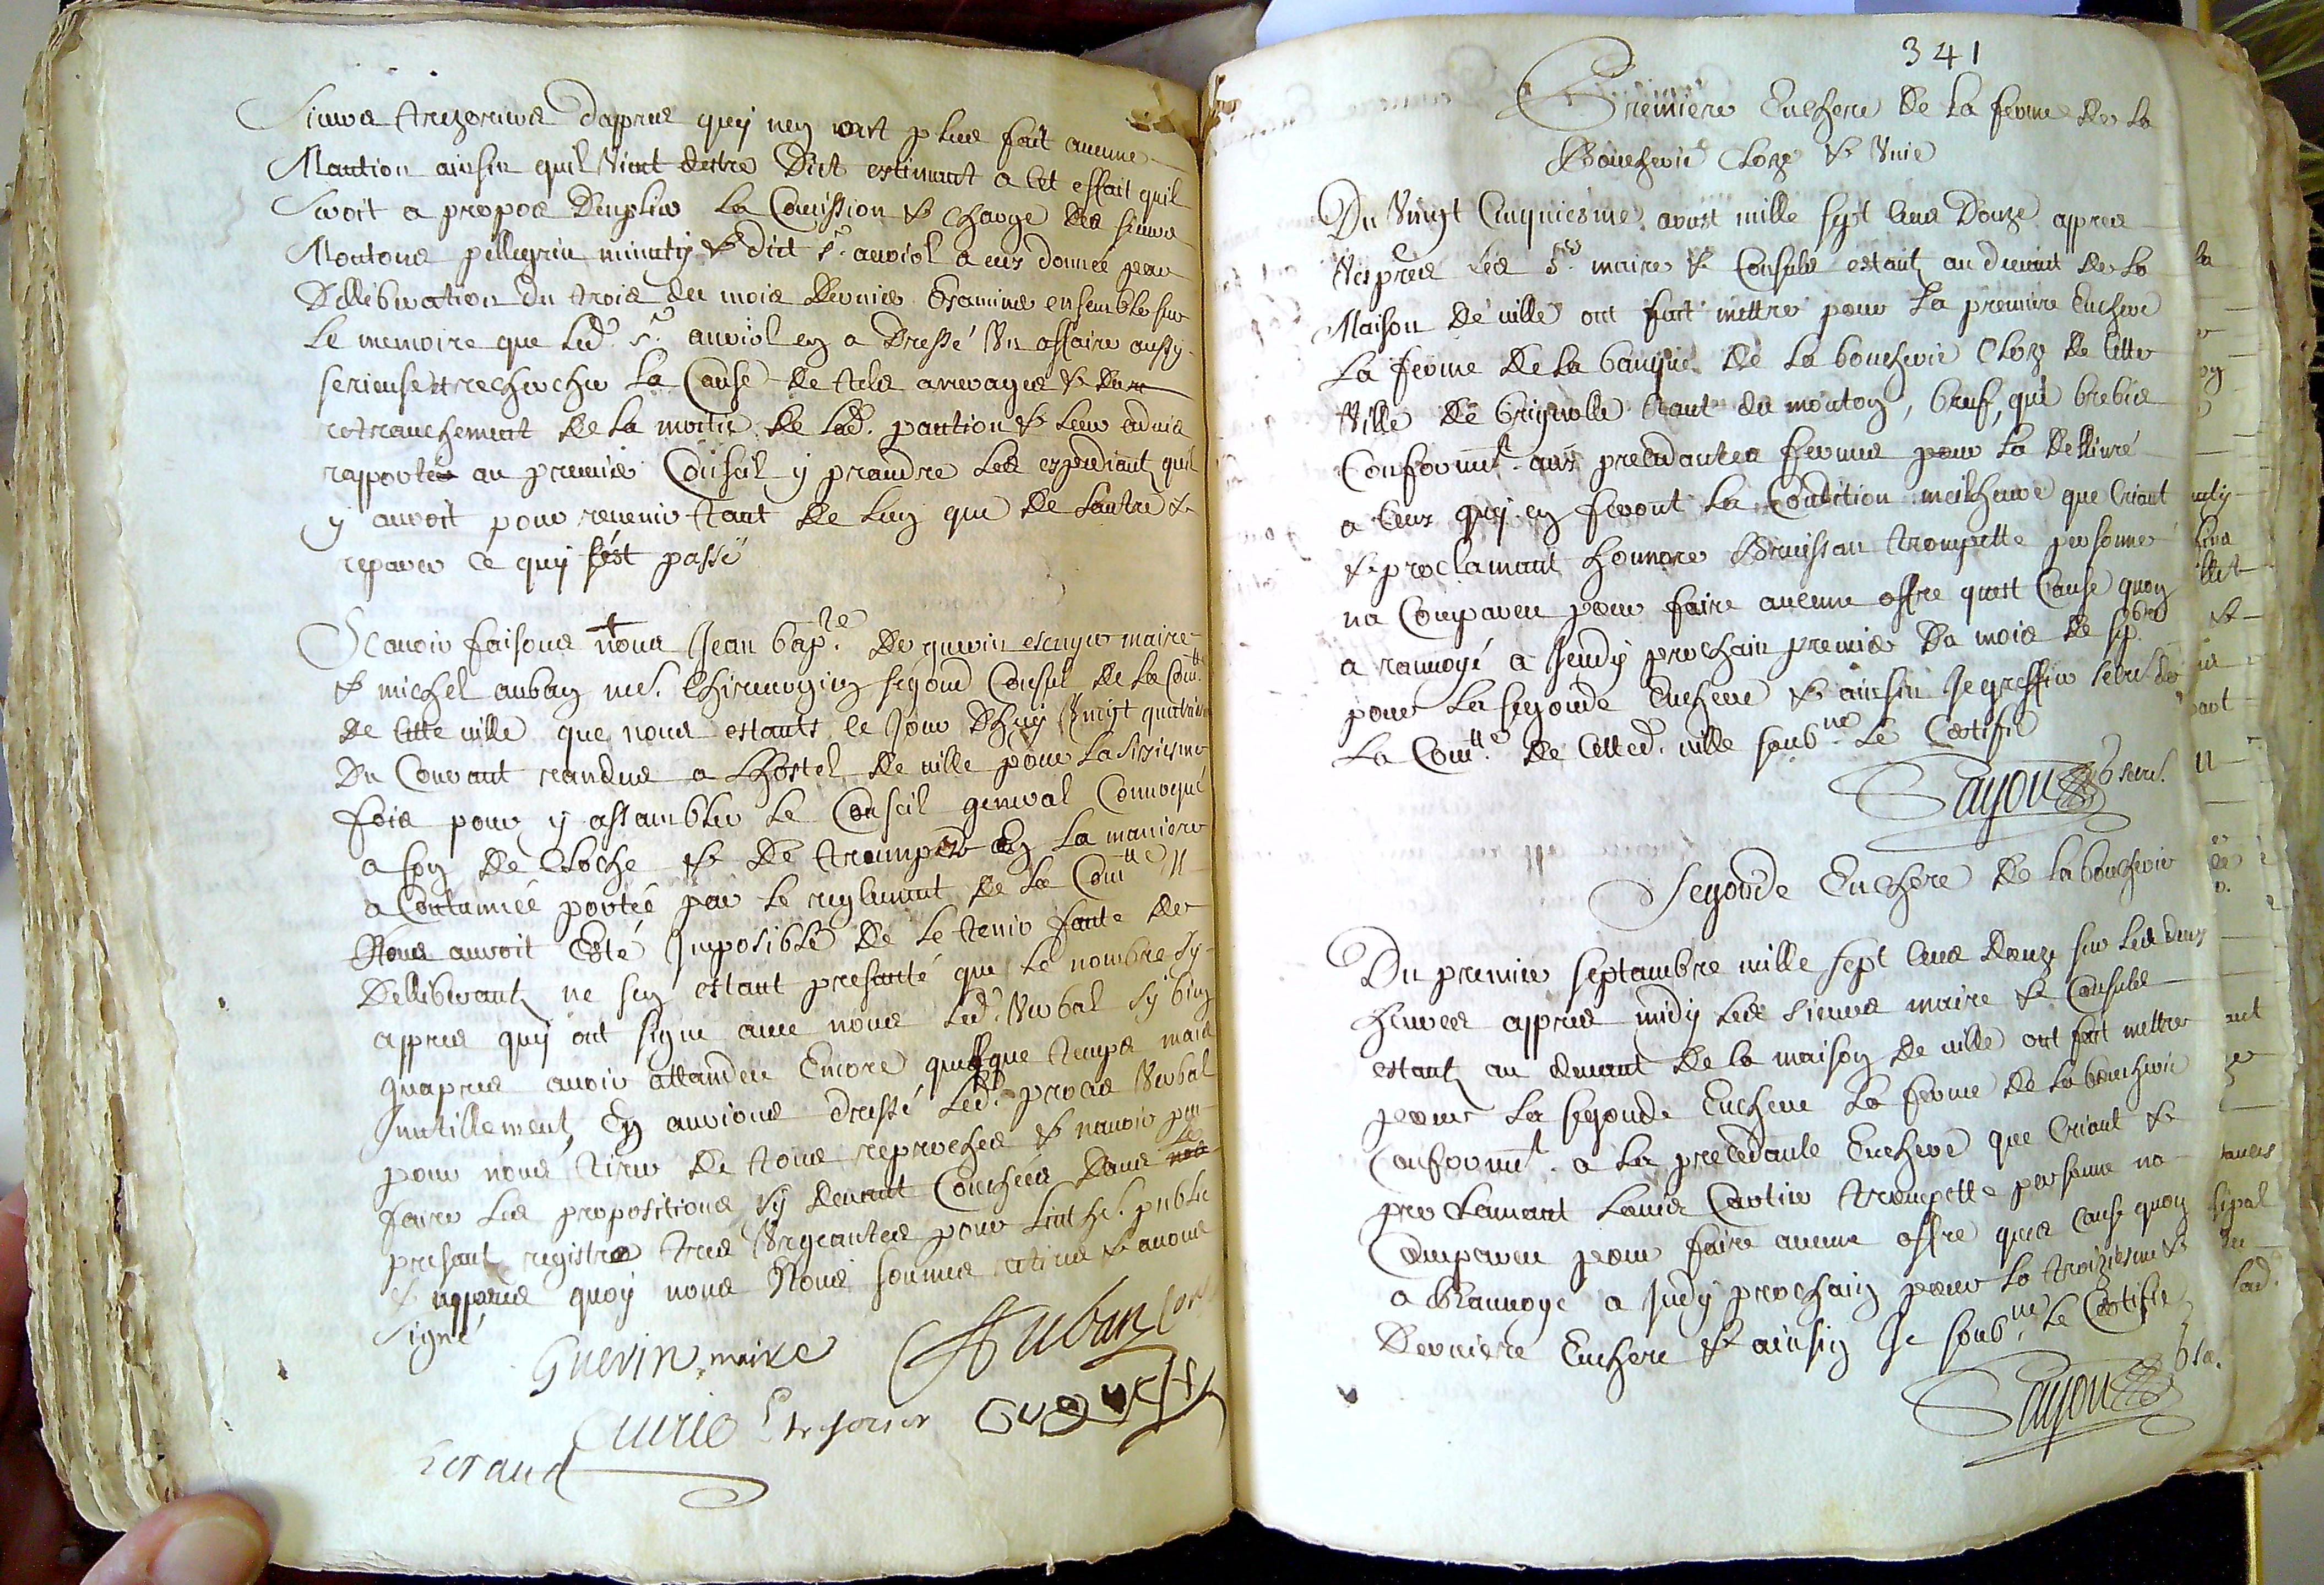 Sieurs trezoriers d'appres quoy ney ont plus fait aucune
Mantion ainsin quil vient destre Dict estimant a cet effait quil
seroit a propos Dempl la Comission & charge des sieurs
Moutons pellegrin minuty & dict sr. auriol a eux donnée par
Delliberation du trois du mois Dernier Examiner ensemble sur
Le memoire que led. sr. auriol en a Dressé Un affaire aussy
serieuse rechercher La Cause de tels arrerages & du
retranchement de la moitie de lad. pantion & leur advis
rapporter au premier Conseil y prandre les expediant quil
y auroit pour revenir tant de lun que de lautre &
reparer ce quy sést passé
Scavoir faisons nous Jean bapte. de guerin escuyer maire
& michel auban me. Chirurgien segond Consul de la Comtte
de cette ville que nous estants ce jour dhuy vingt quatriesme
Du Courant randus a Lhostel de ville pour la sixiesme
fois pour y assambler le Conseil general Convoqué
a son de cloche & de trompete en la maniere
acoutumée portée par le reglemant de la Comtte
Nous auroit Esté Imposible de le tenir faute de
Delliberants ne sen estant presanté que le nombre sy
appres quy ont signe avec nous led. Verbal sy bien
quapres avoir attandeu Encore quelque temps mais
Inutillement, En aurions dressé led. proces Verbal
pour nous tirer de tous reproches & navoir peu
faire les propositions sy devant Couchées Dans le
presant registre tres Urgeantes pour Linth. public
& appres quoy nous Nous sommes retires & avons
signé
Guerin maire Auban Con
Curie tresorier
Eiraud
341
Premiere Enchere de la ferme de la
Boucherie Close & Unie
Du Vingt Cinquiesme aoust mille sept cens Douze appres
Vespres les srs. maire & Consuls estant au devant de la
Maison de ville ont fait mettre pour la premiere Enchere
La ferme de la banque de la boucherie Close de cette
Ville de brignolle tant du mouton, bœuf, que brebis
Conformt. aux precedantes fermes pour la dellivré
a ceux quy en feront la Condition meilheure que Criant
& proclamant honnore Bruissan trompette personne
na Compareu pour faire aucune offre quest Cause quon
a ranvoyé a Jeudy prochain premier Du mois de sepbre
pour la segonde Enchere & ainsin Je greffier secre. de
la Comtte de cetted. ville soubne le Certifie
Sayou secre.
Segonde Enchere de la boucherie
Du premier septambre mille sept cens douze sur les deux
heures appres midy les sieurs maire & Consuls
estant au devant de la maison de ville ont fait mettre
pour la segonde Enchere la ferme de la boucherie
Conformt. a la precedante Enchere que Criant &
proclamant Louis Cartier trompette personne na
Compareu pour faire aucune offre ques cause quon
a Ranvoye a Jeudy prochain pour la troiziesme &
Derniere Enchere & ainsin Je soubne le Certifie
Sayou